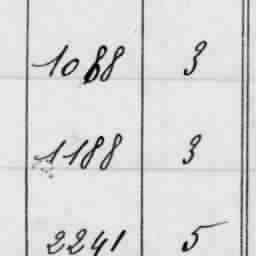 1088 3
1188 3
2241 5